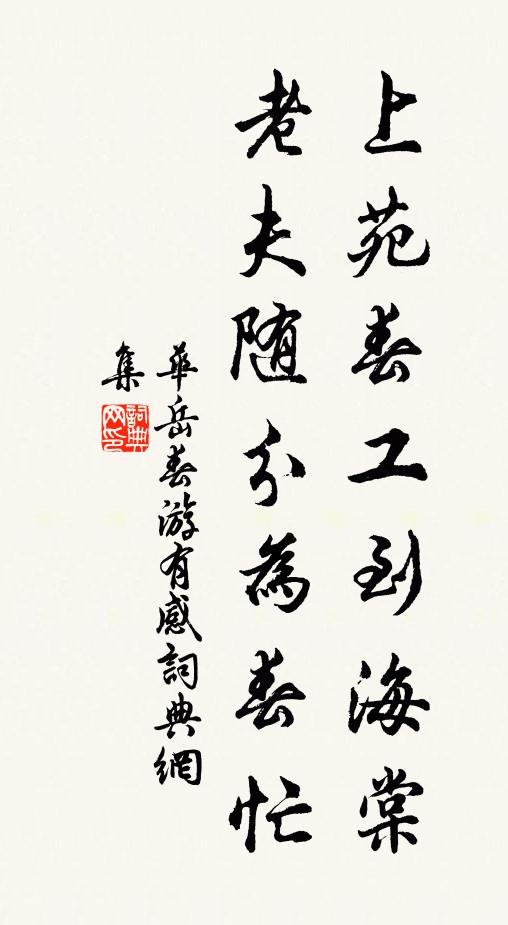 上苑春工到海棠
老夫随分為春忙
華岳春游有感詞典網
集
詞典
网印